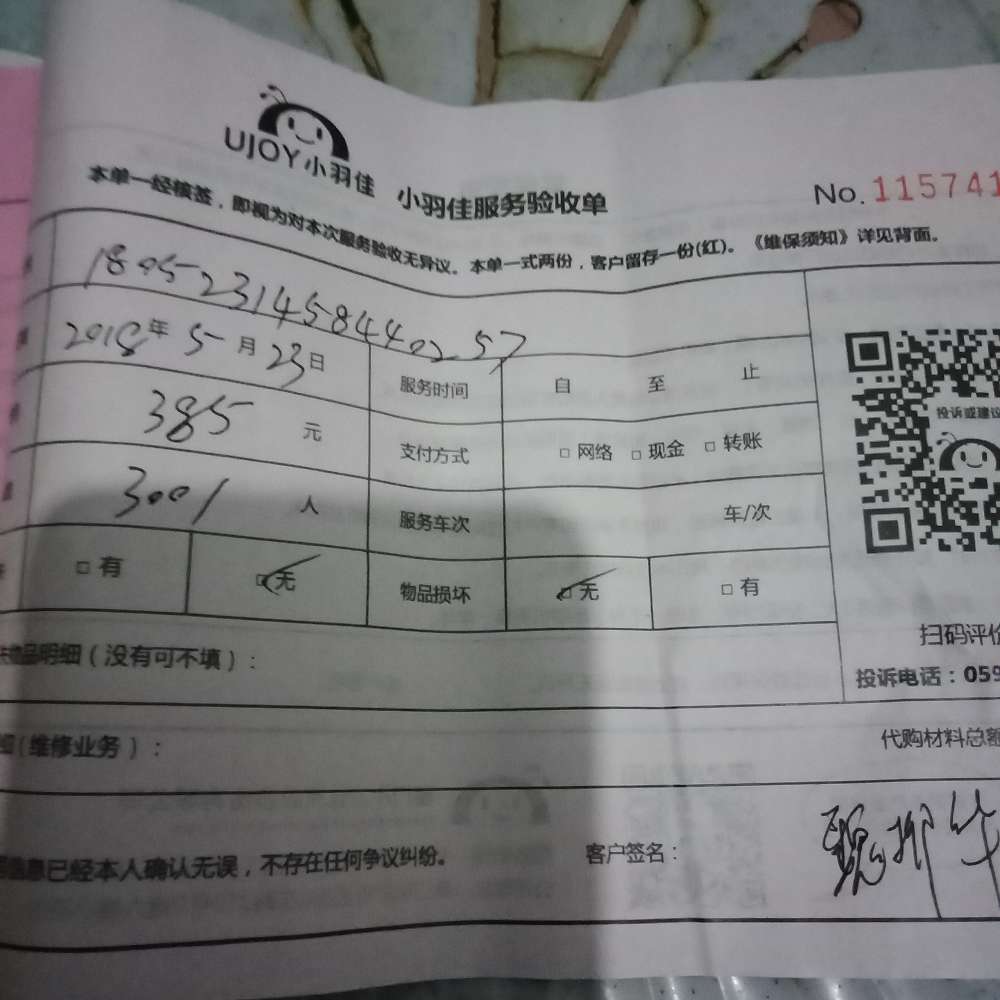 UJOY小羽佳 小羽佳服务验收单 No.115741
本单一经核签，即视为对本次服务验收无异议。本单一式两份，客户留存一份(红)。《维保须知》详见背面。
1805231458440257
2018年5月23日 服务时间 自 至 止
385 元 支付方式 □网络 □现金 □转账
3001 人 服务车次 车/次
投诉或建议
□有 □无 物品损坏 □无 □有
扫码评价
物品明细（没有可不填）：
投诉电话：059
（维修业务）： 代购材料总额
信息已经本人确认无误，不存在任何争议纠纷。 客户签名：